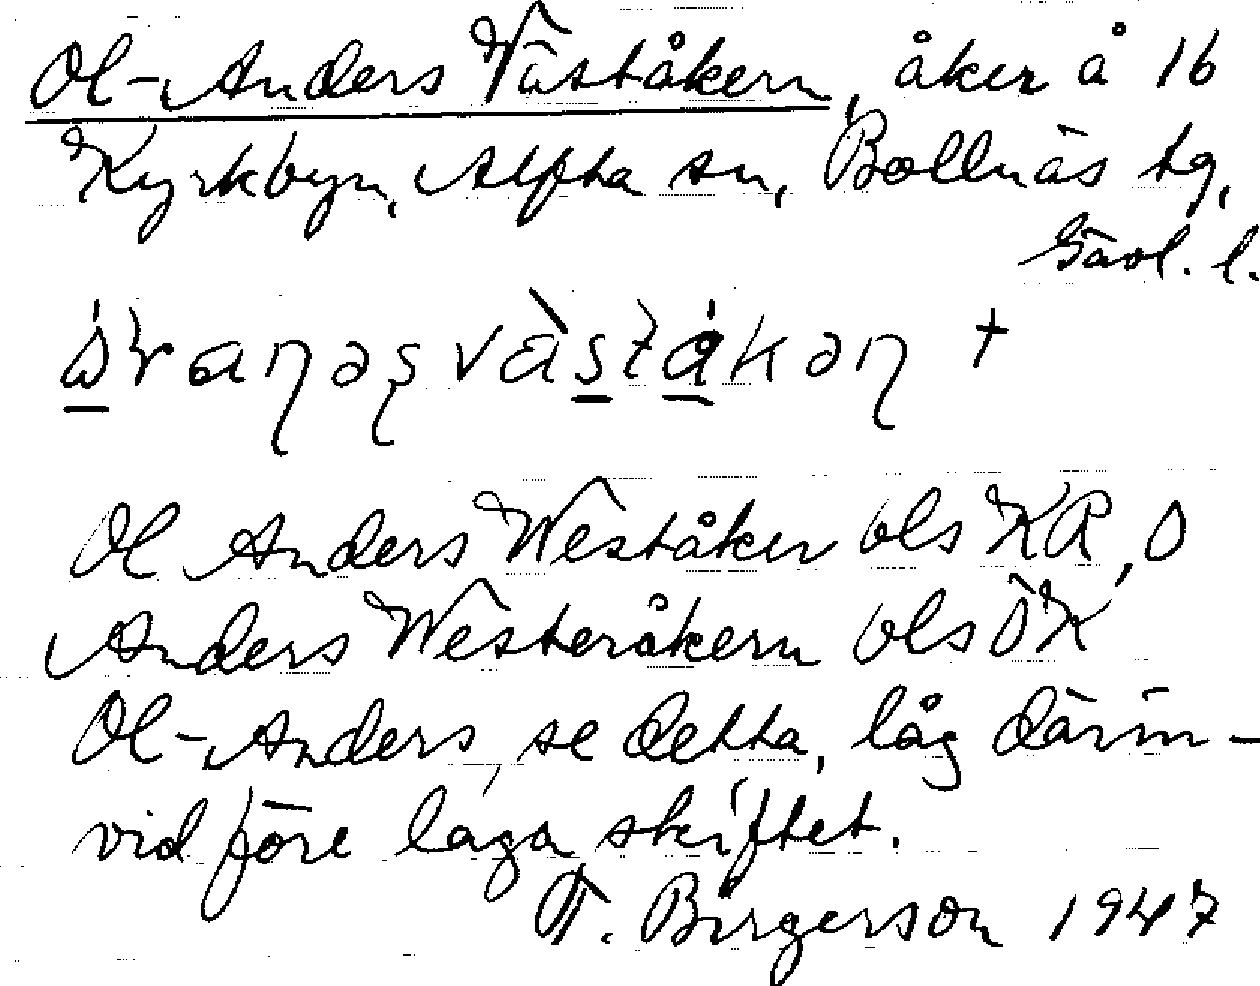 Ol-Anders Väståkern, åker å 16
Kyrkbyn, Alfta sn, Bollnäs tg,
Gävl. l.
Ol Anders Weståker ols KR, O
Anders Westeråkern ols ÖK
Ol-Anders, se detta, låg därin-
vid före laga skiftet.
T. Birgerson 1947